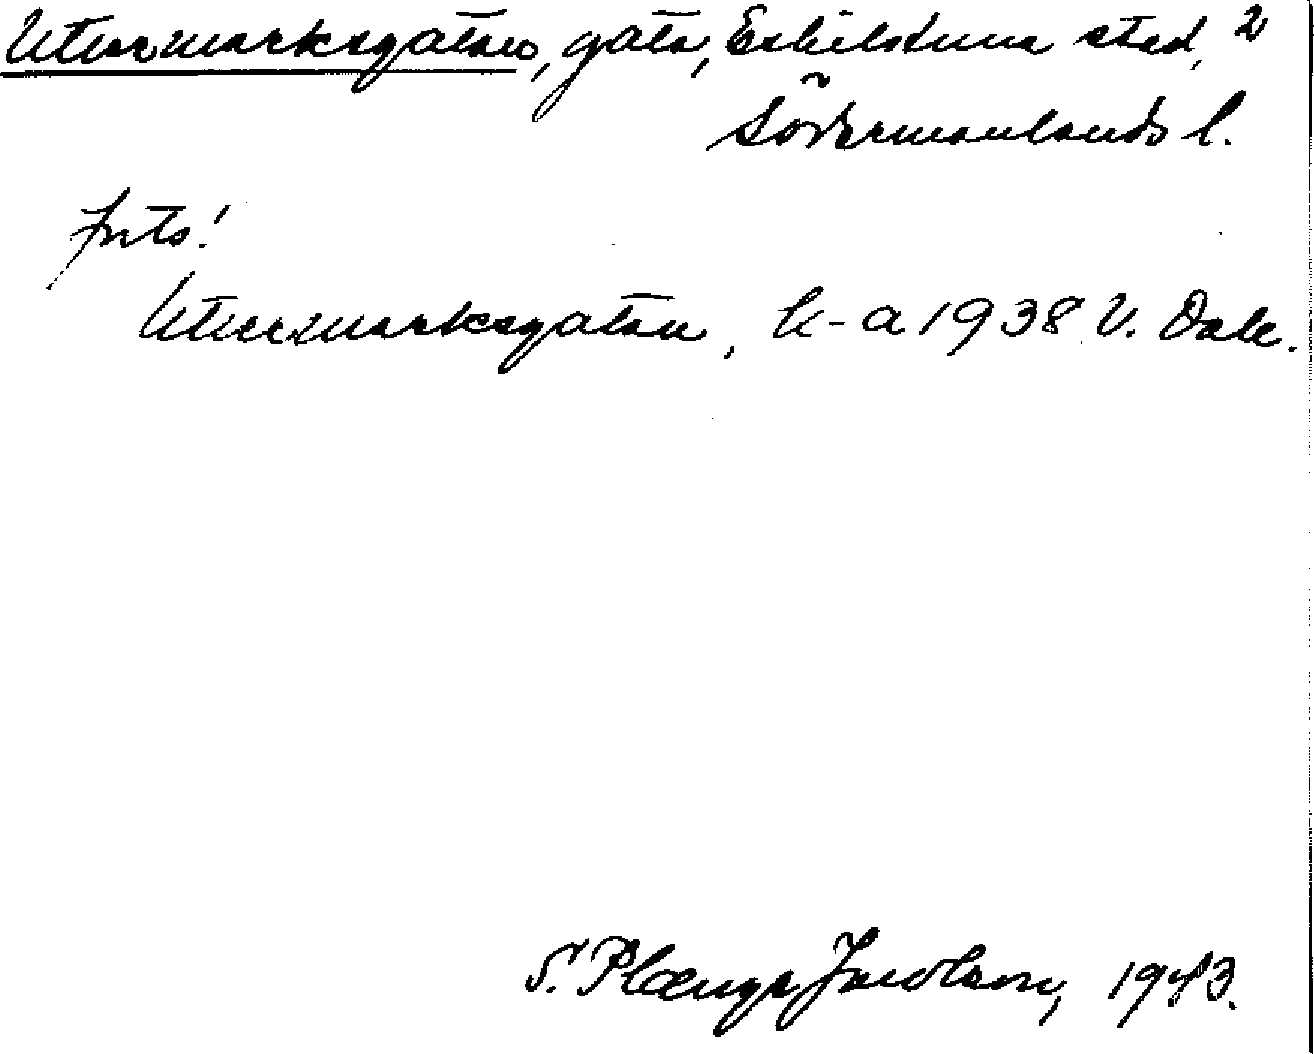 Utermarksgatan, gata, Eskilstuna stad, 2
Södermanlands l.
fnts!
Utermarksgatan, k-a 1938 V. Dale.
S. Plænge Jacobson, 1943.